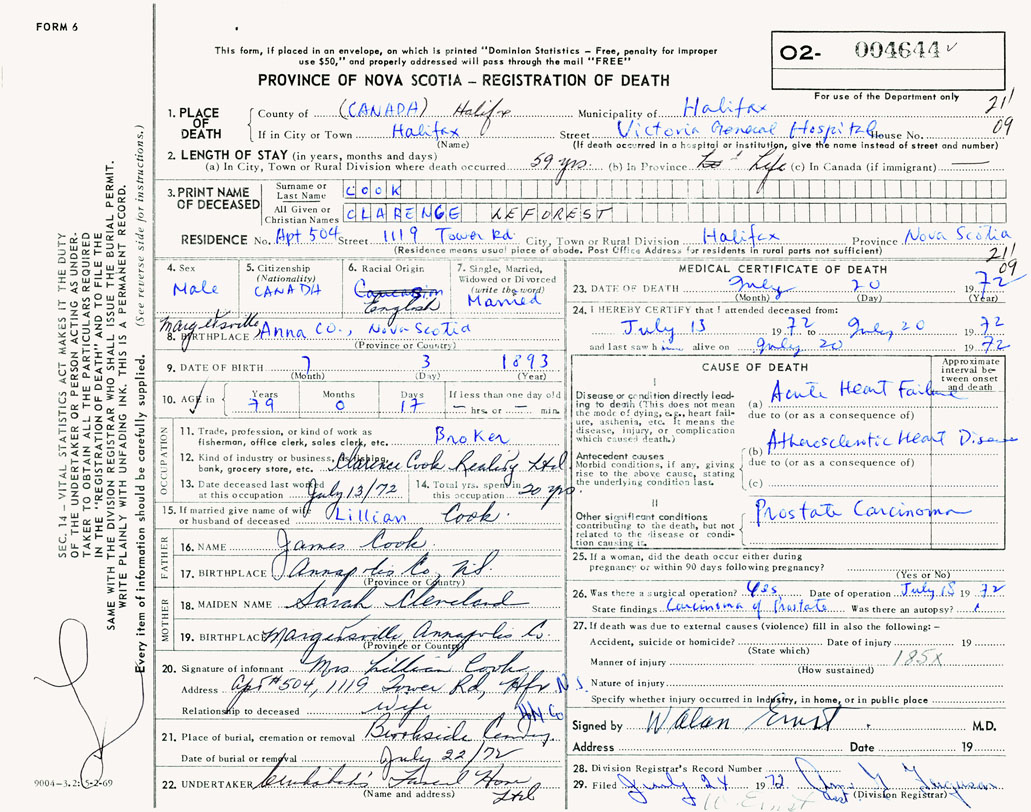 FORM 6
This form, if placed in an envelope, on which is printed "Dominion Statistics – Free, penalty for improper
use $50," and properly addressed will pass through the mail "FREE"
PROVINCE OF NOVA SCOTIA – REGISTRATION OF DEATH
O2- 004644
For use of the Department only
211
09
1. PLACE OF DEATH
County of (CANADA) Halifax Municipality of Halifax
If in City or Town Halifax Street Victoria General Hospital House No.
(Name) (If death occurred in a hospital or institution, give the name instead of street and number)
2. LENGTH OF STAY (in years, months and days)
(a) In City, Town or Rural Division where death occurred 59 yrs. (b) In Province Life (c) In Canada (if immigrant) —
3. PRINT NAME OF DECEASED
Surname or Last COOK
All Given or Christian Names CLARENCE LEFOREST
RESIDENCE No. Apt 504 Street 1119 Tower Rd. City, Town or Rural Division Halifax Province Nova Scotia
(Residence means usual place of abode. Post Office Address for residents in rural parts not sufficient)
211
09
4. Sex
Male
5. Citizenship
(Nationality)
CANADA
6. Racial Origin
Caucasian
English
7. Single, Married,
Widowed or Divorced
(write the word)
Married
8. BIRTHPLACE Margaretsville Anna Co., Nova Scotia
(Province or Country)
9. DATE OF BIRTH 7 3 1893
(Month) (Day) (Year)
10. AGE in Years Months Days If less than one day old
79 0 17 — hrs. or — min.
OCCUPATION
11. Trade, profession, or kind of work as
fisherman, office clerk, sales clerk, etc. Broker
12. Kind of industry or business, as fishing,
bank, grocery store, etc. Clarence Cook Reality Ltd
13. Date deceased last worked
at this occupation July 13/72
14. Total yrs. spent in
this occupation 20 yrs.
15. If married give name of wife
or husband of deceased Lillian Cook.
FATHER
16. NAME James Cook
17. BIRTHPLACE Annapolis Co, N.S.
(Province or Country)
MOTHER
18. MAIDEN NAME Sarah Cleveland
19. BIRTHPLACE Margaretsville, Annapolis Co.
(Province or Country)
20. Signature of informant Mrs Lillian Cook
Address Apt #504, 1119 Tower Rd, Hfx N.S.
Relationship to deceased Wife
21. Place of burial, cremation or removal Brookside
Date of burial or removal July 22/72
22. UNDERTAKER Funeral Home
(Name and address) Ltd
MEDICAL CERTIFICATE OF DEATH
23. DATE OF DEATH July 20 1972
(Month) (Day) (Year)
24. I HEREBY CERTIFY that I attended deceased from:
July 13 1972 to July 20 1972
and last saw him alive on July 20 1972
CAUSE OF DEATH
Approximate interval between onset and death
I
Disease or condition directly leading to death (This does not mean the mode of dying, e.g., heart failure, asthenia, etc. It means the disease, injury, or complication which caused death.)
(a) Acute Heart Failure
due to (or as a consequence of)
Antecedent causes
Morbid conditions, if any, giving rise to the above cause, stating the underlying condition last.
(b) Atherosclerotic Heart Disease
due to (or as a consequence of)
(c)
II
Other significant conditions contributing to the death, but not related to the disease or condition causing it.
Prostate Carcinoma
25. If a woman, did the death occur either during
pregnancy or within 90 days following pregnancy?
(Yes or No)
26. Was there a surgical operation? Yes Date of operation July 18 1972
State findings Carcinoma of Prostate Was there an autopsy?
27. If death was due to external causes (violence) fill in also the following: –
Accident, suicide or homicide? Date of injury 19
(State which)
Manner of injury 185X
(How sustained)
Nature of injury
Specify whether injury occurred in industry, in home, or in public place
Signed by Ernst M.D.
Address Date 19
28. Division Registrar's Record Number
29. Filed July 24 1972 Ferguson
(Division Registrar)
W Ernst
SEC. 14 – VITAL STATISTICS ACT MAKES IT THE DUTY
OF THE UNDERTAKER OR PERSON ACTING AS UNDER-
TAKER TO OBTAIN ALL THE PARTICULARS REQUIRED
IN THE "REGISTRATION OF DEATH" AND TO FILE THE
SAME WITH THE DIVISION REGISTRAR WHO SHALL ISSUE THE BURIAL PERMIT.
WRITE PLAINLY WITH UNFADING INK. THIS IS A PERMANENT RECORD.
Every item of information should be carefully supplied. (See reverse side for instructions.)
9004-3.2: 5-2-69